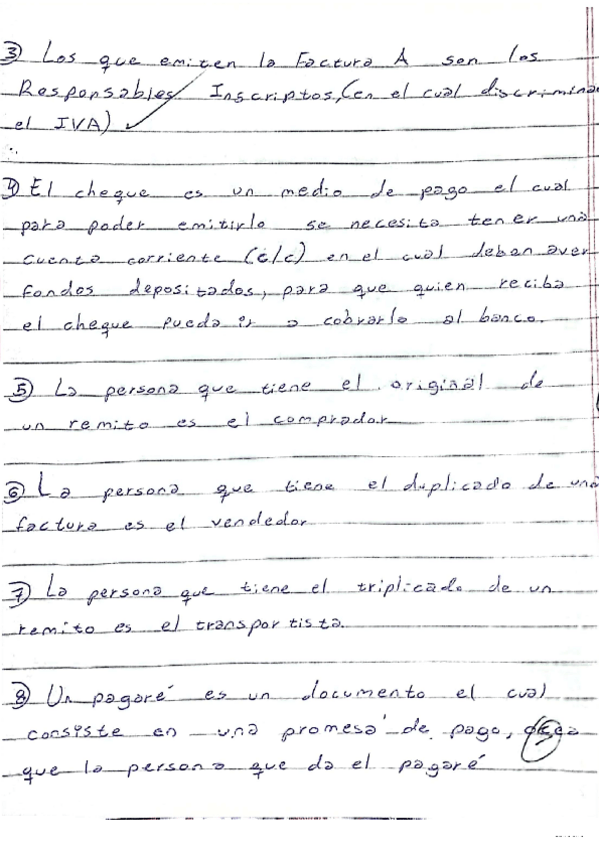 3) Los que emiten la Factura A son los
Responsables Inscriptos, (en el cual discrimina
el IVA)
4) El cheque es un medio de pago el cual
para poder emitirlo se necesita tener una
cuenta corriente (c/c) en el cual deban aver
fondos depositados, para que quien reciba
el cheque pueda ir a cobrarlo al banco.
5) La persona que tiene el original de
un remito es el comprador
6) La persona que tiene el duplicado de una
factura es el vendedor
7) La persona que tiene el triplicado de un
remito es el transportista.
8) Un pagaré es un documento el cual
consiste en una promesa de pago,
que la persona que da el pagaré